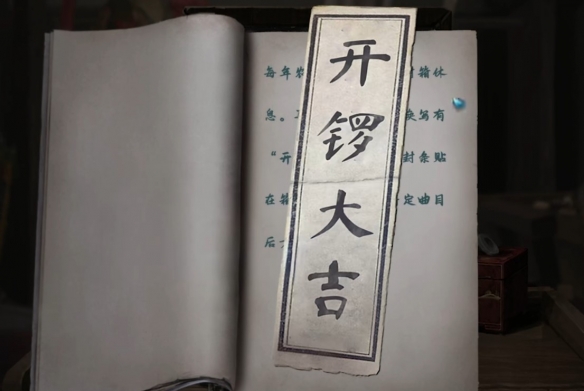 开锣大吉
每年 箱休
息。 换写有
“开 封条贴
在箱 定曲目
后